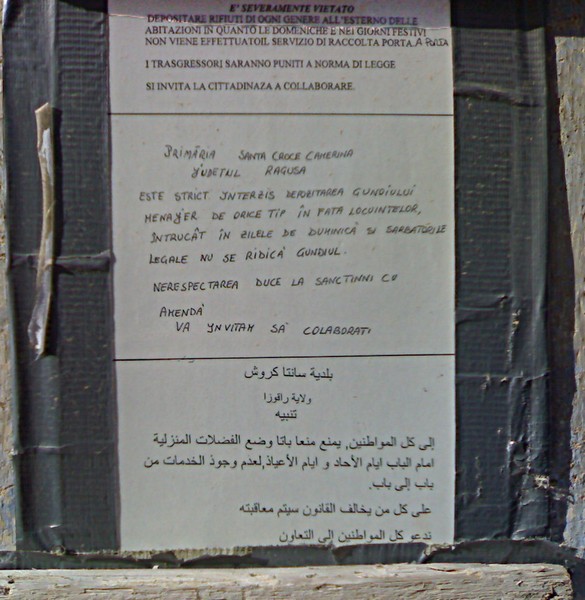 E' SEVERAMENTE VIETATO
DEPOSITARE RIFIUTI DI OGNI GENERE ALL'ESTERNO DELLE
ABITAZIONI IN QUANTO LE DOMENICHE E NEI GIORNI FESTIVI
NON VIENE EFFETTUATOIL SERVIZIO DI RACCOLTA PORTA A PORTA
I TRASGRESSORI SARANNO PUNITI A NORMA DI LEGGE
SI INVITA LA CITTADINAZA A COLLABORARE.
PRIMĂRIA SANTA CROCE CAMERINA
YUDEȚUL RAGUSA
ESTE STRICT YNTERZIS DEPOZITAREA GUNOIULUI
MENAJER DE ORICE TIP ÎN FATA LOCUINTELOR,
ÎNTRUCÂT ÎN ZILELE DE DUMINICĂ SI SARBATORILE
LEGALE NU SE RIDICĂ GUNOIUL.
NERESPECTAREA DUCE LA SANCTINNI CU
AMENDĂ
VA YNVITAM SĂ COLABORATI
بلدية سانتا كروش
ولاية راقوزا
تنبيه
إلى كل المواطنين, يمنع منعا باتا وضع الفضلات المنزلية
امام الباب ايام الأحاد و ايام الأعياذ,لعدم وجوذ الخدمات من
باب إلى باب.
على كل من يخالف القانون سيتم معاقبته
ندعو كل المواطنين إلى التعاون